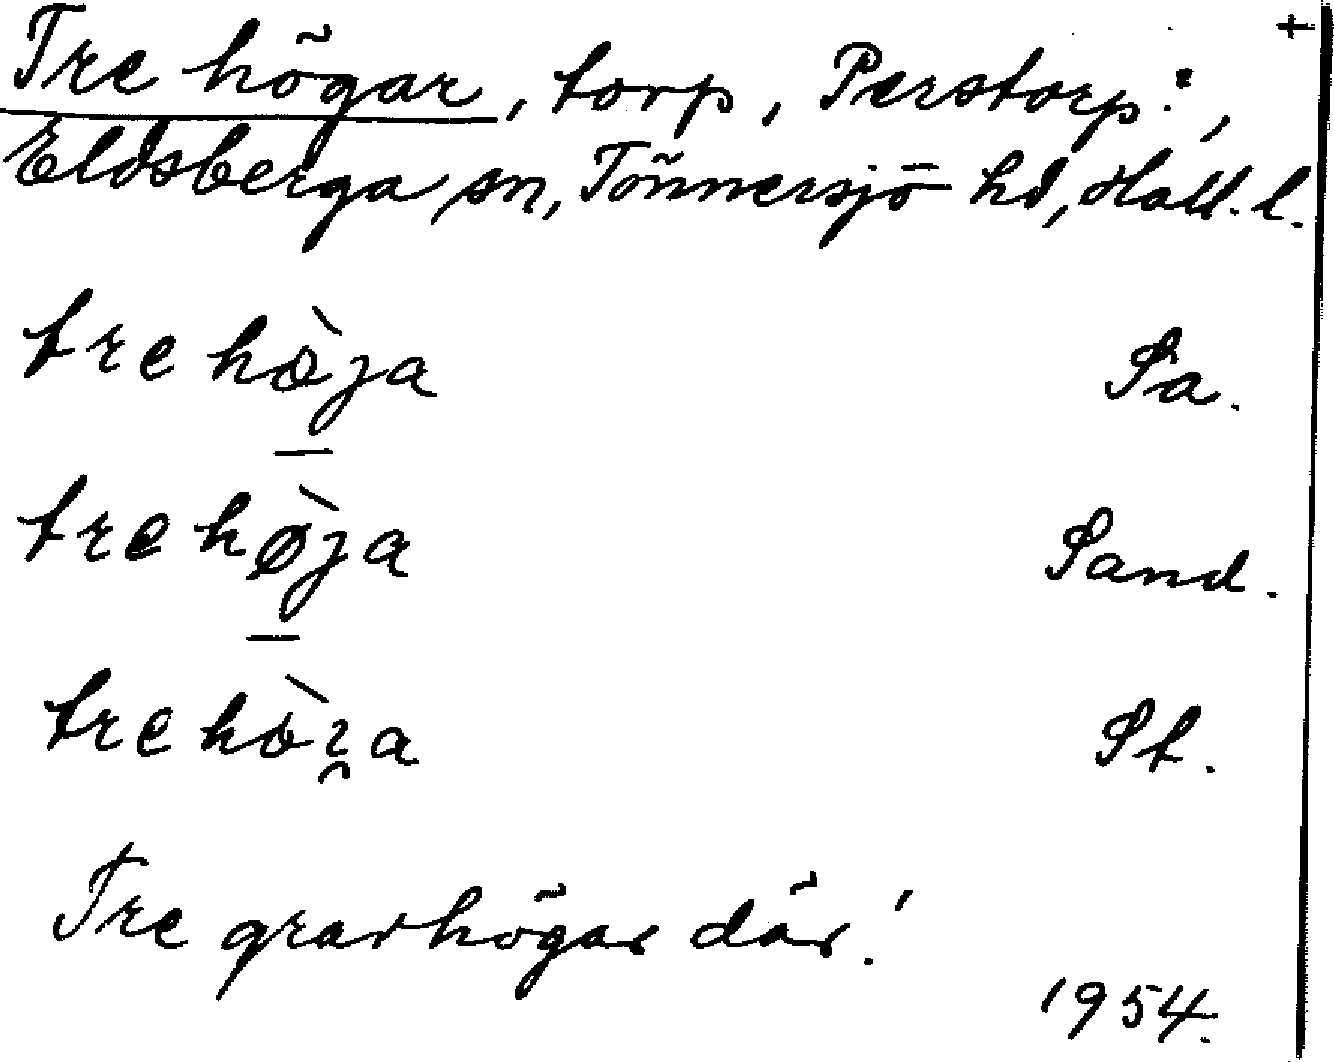 Tre högar, torp, Perstorp:,
Eldsberga sn, Tönnersjö hd, Hall. l.
tre hòja Sa.
tre hø̀ja Sand.
tre hòʒa St.
Tre gravhögar där!
1954.